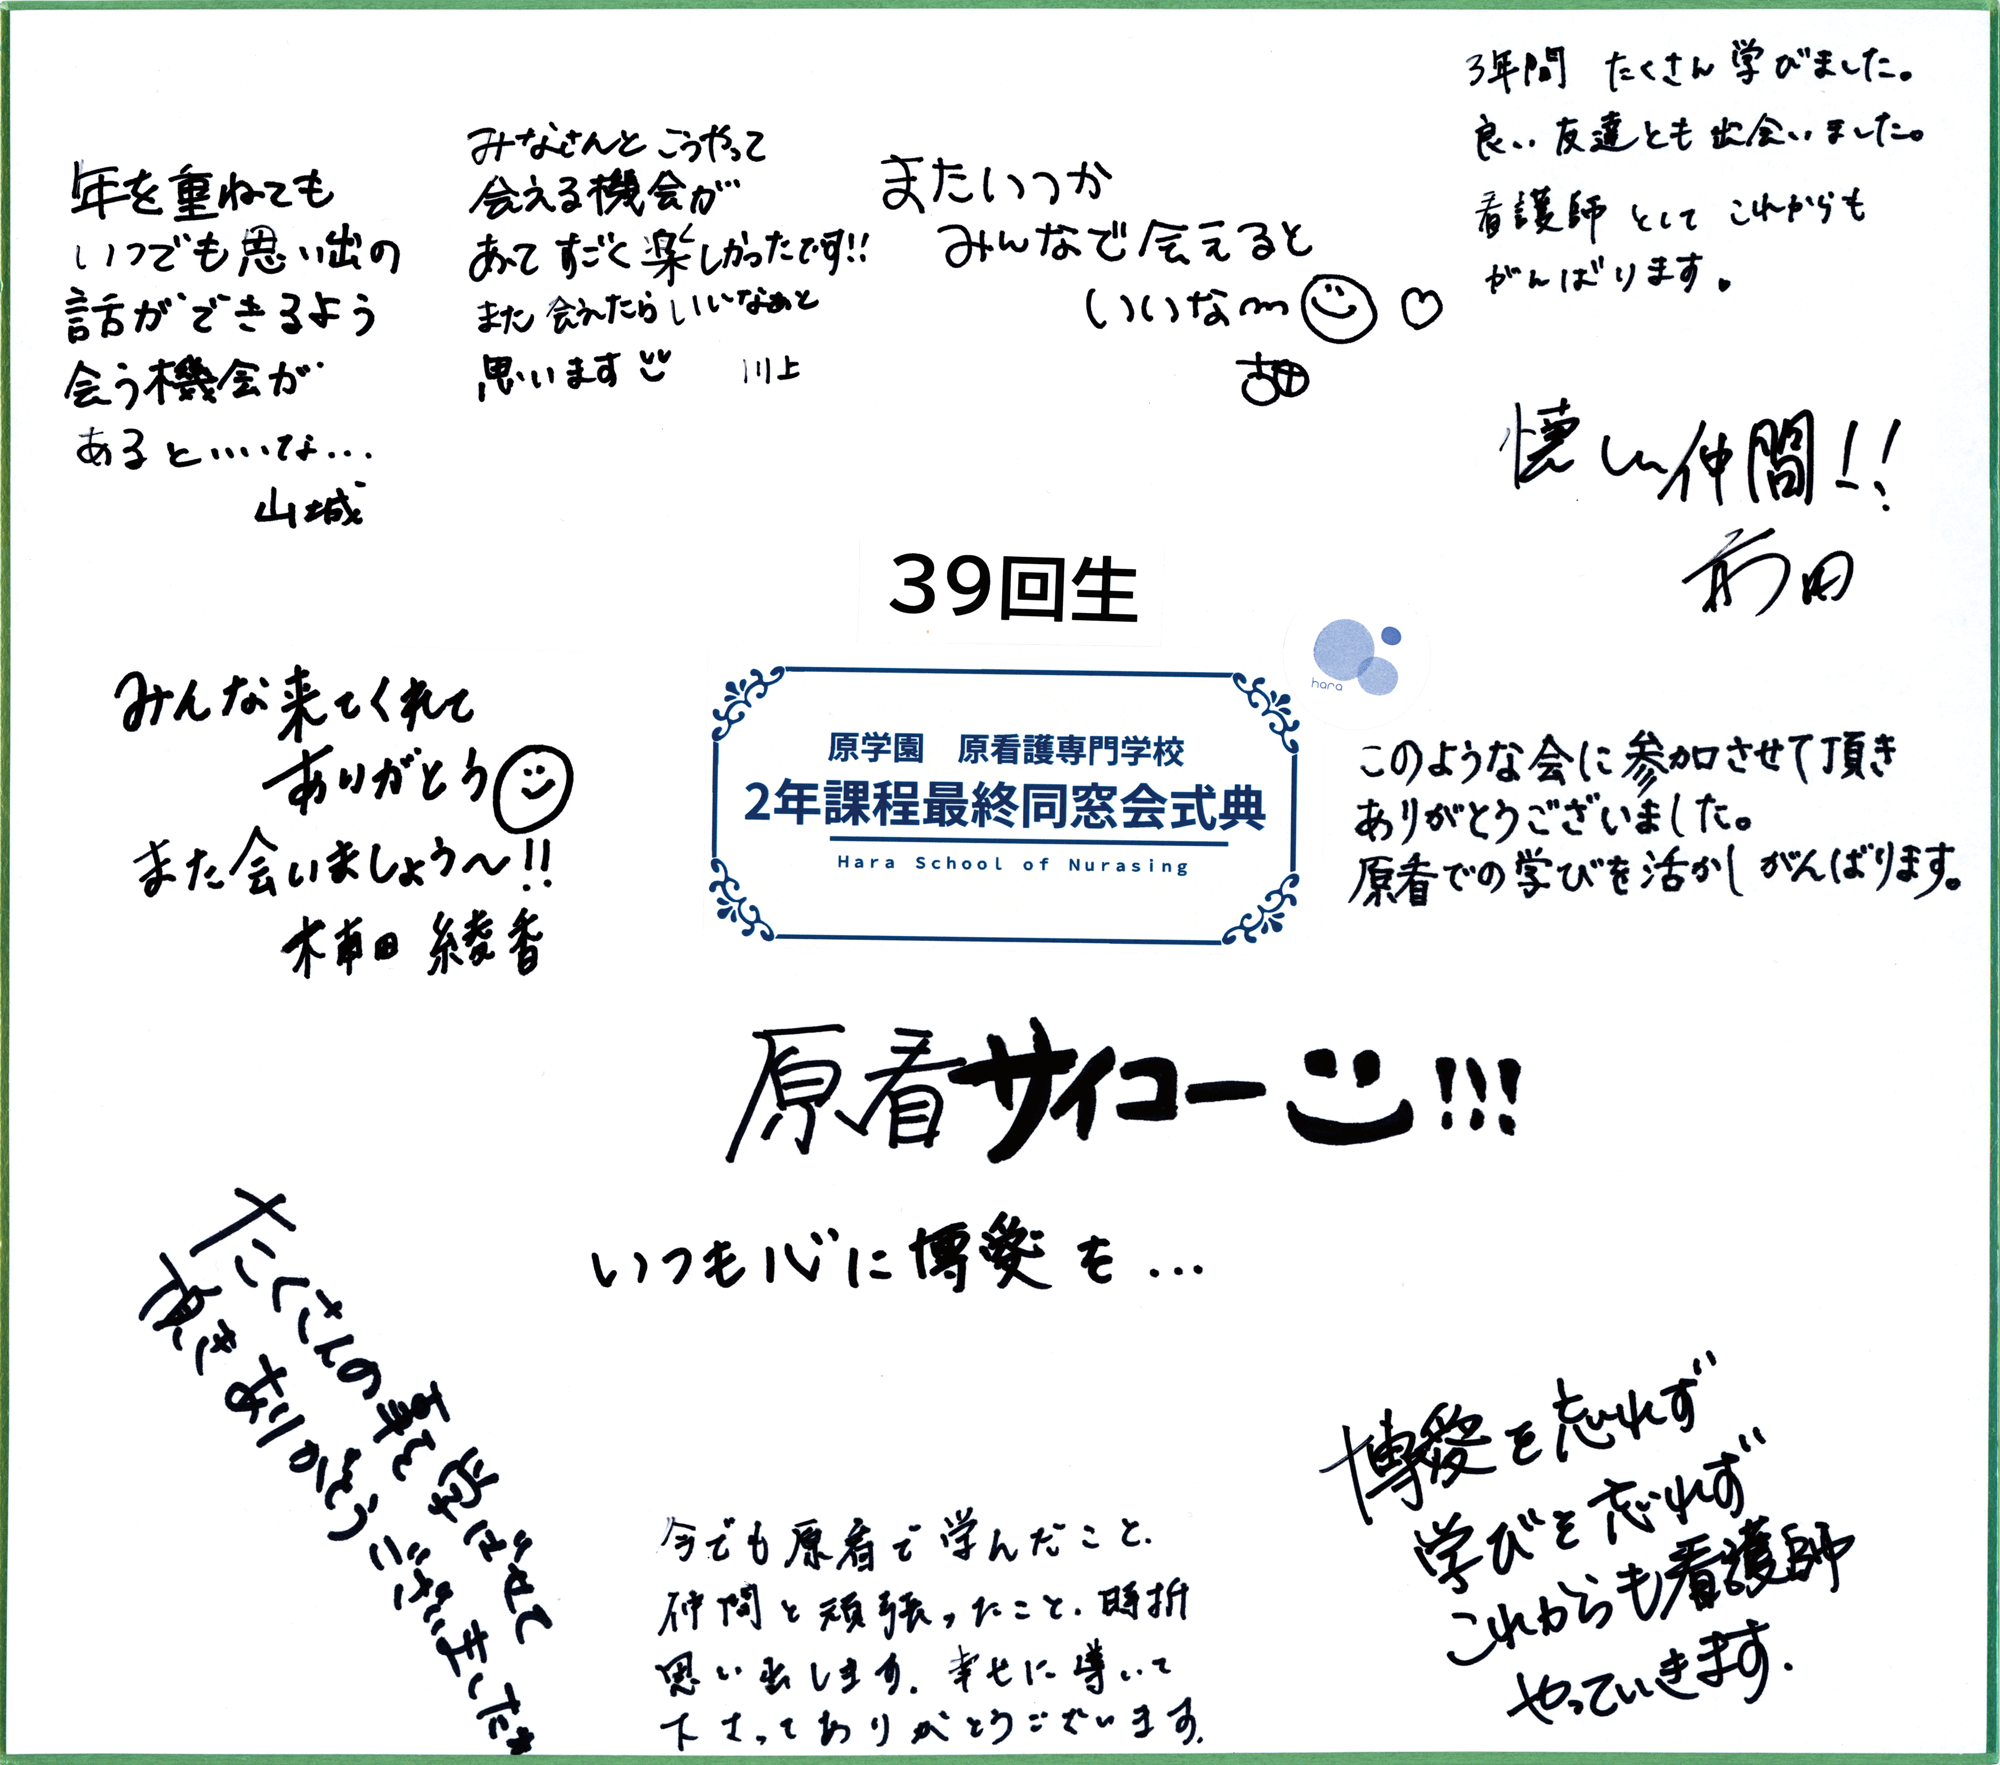 年を重ねても
いつでも思い出の
話ができるよう
会う機会が
あるといいな…
山城
みなさんとこうやって
会える機会が
あってすごく楽しかったです!!
また会えたらいいなぁと
思います
川上
またいつか
みんなで会えると
いいな
3年間 たくさん学びました。
良い友達とも出会いました。
看護師としてこれからも
がんばります。
懐しい仲間!!
前田
39回生
hara
原学園 原看護専門学校
2年課程最終同窓会式典
Hara School of Nurasing
みんな来てくれて
ありがとう
また会いましょう〜!!
綾香
このような会に参加させて頂き
ありがとうございました。
原看での学びを活かしがんばります。
原看サイコー!!!
いつも心に博愛を…
たくさんの事を学ばせて
頂きありがとうございました。
今でも原看で学んだこと、
仲間と頑張ったこと、時折
思い出します。幸せに導いて
下さってありがとうございます。
博愛を忘れず
学びを忘れず
これからも看護師
やっていきます。